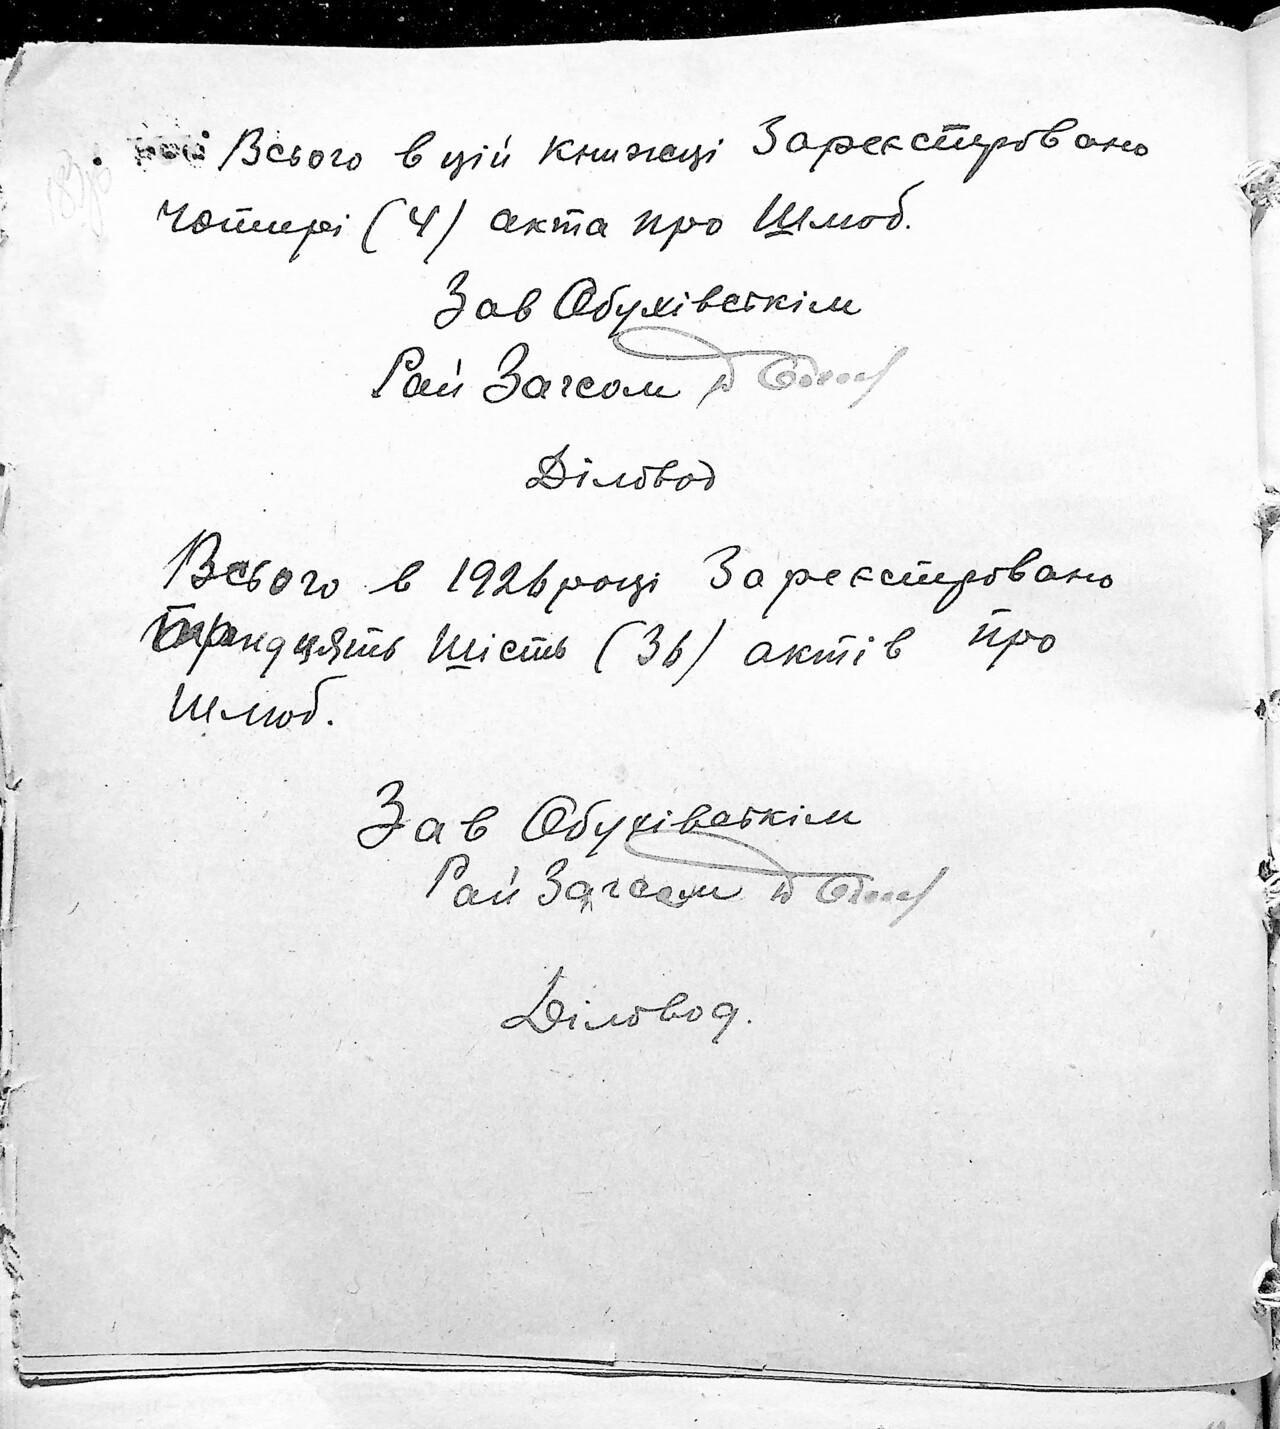 Всього в цій книжеці Зареєстровано
Чотирі (4) акта про Шлюб.
Зав Обухівським
Рай Загсом
Діловод
Всього в 1926 році Зареєстровано
тридцять шість (36) актів про
Шлюб.
Зав Обухівським
Рай Загсом
Діловод.